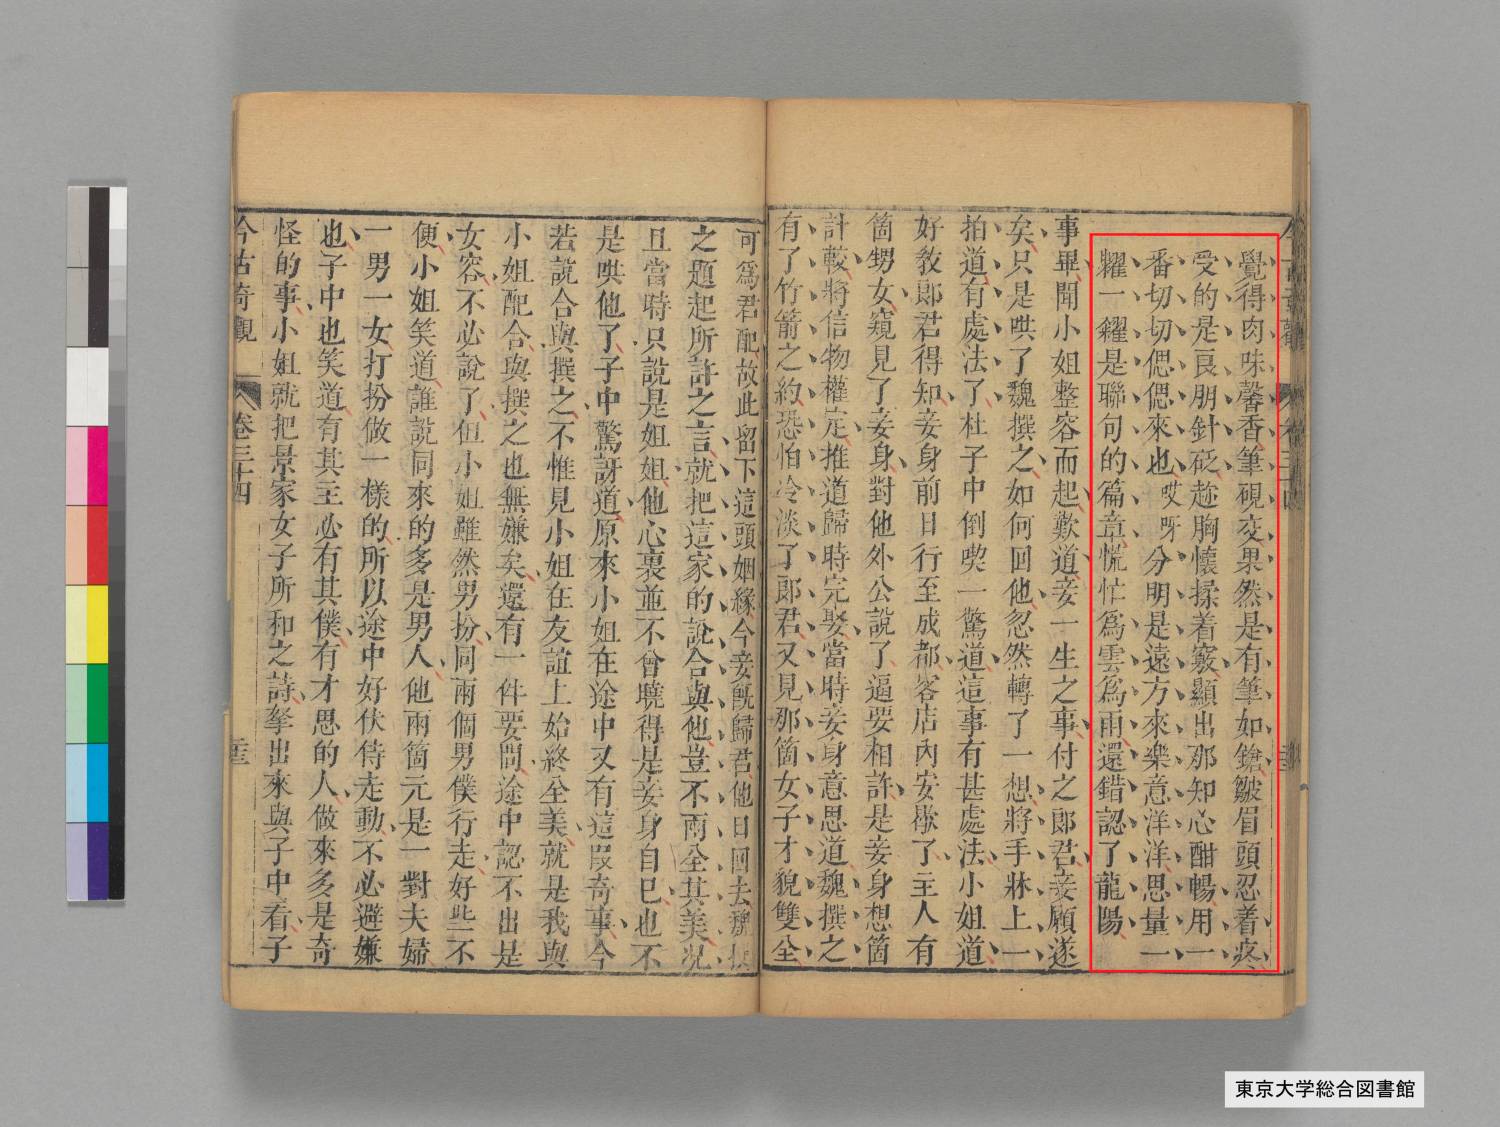 覺得肉味馨香筆硯交果然是有筆如鎗皺眉頭忍着疼
受的是良朋針砭趂胸懷揉着竅顯出那知心酣暢用一
番切切偲偲來也哎呀分明是遠方來樂意洋洋思量一
糶一糴是聯句的篇章慌忙爲雲爲雨還錯認了龍陽
事畢聞小姐整容而起歎道妾一生之事付之郎君妾願遂
矣只是哄了魏撰之如何回他忽然轉了一想將手牀上一
拍道有處法了杜子中倒喫一驚道這事有甚處法小姐道
好敎郎君得知妾身前日行至成都客店內安歇了主人有
箇甥女窺見了妾身對他外公說了逼要相許是妾身想箇
計較將信物權定推道歸時完娶當時妾身意思道魏撰之
有了竹箭之約恐怕冷淡了郎君又見那箇女子才貌雙全
可爲君配故此留下這頭姻緣今妾旣歸君他日回去魏撰
之題起所許之言就把這家的說合與他豈不兩全其美况
且當時只說是姐姐他心裏並不曾曉得是妾身自己也不
是哄他了子中驚訝道原來小姐在途中又有這段奇事今
若說合與撰之不惟見小姐在友誼上始終全美就是我與
小姐配合與撰之也無嫌矣還有一件要問途中認不出是
女容不必說了但小姐雖然男扮同兩個男僕行走好些不
便小姐笑道誰說同來的多是男人他兩箇元是一對夫婦
一男一女打扮做一樣的所以途中好伏侍走動不必避嫌
也子中也笑道有其主必有其僕有才思的人做來多是奇
怪的事小姐就把景家女子所和之詩拏出來與子中看子
今古奇觀 卷三十四
東京大学総合図書館